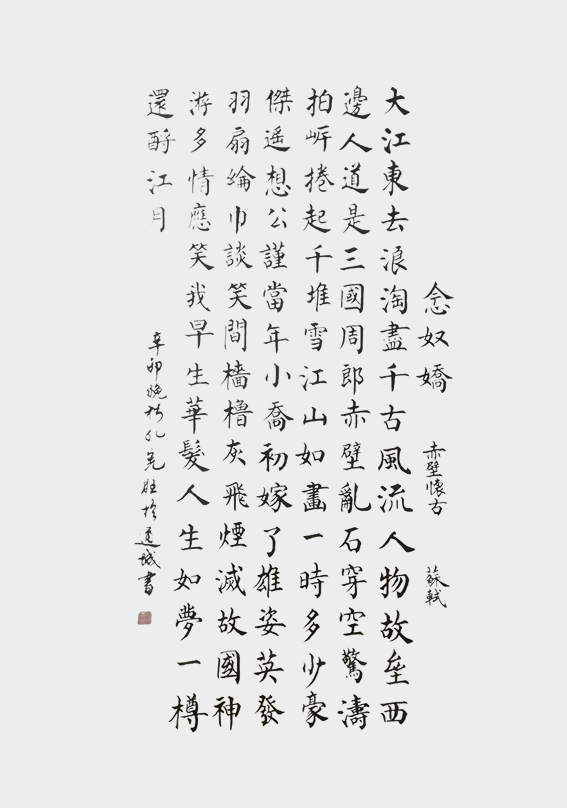 念奴嬌 赤壁懷古 蘇軾
大江東去浪淘盡千古風流人物故垒西
邊人道是三國周郎赤壁亂石穿空驚濤
拍岸捲起千堆雪江山如畫一時多少豪
傑遥想公謹當年小喬初嫁了雄姿英發
羽扇綸巾談笑間檣櫓灰飛煙滅故國神
游多情應笑我早生華髮人生如夢一樽
還酹江月
辛卯晚秋孔於通城書